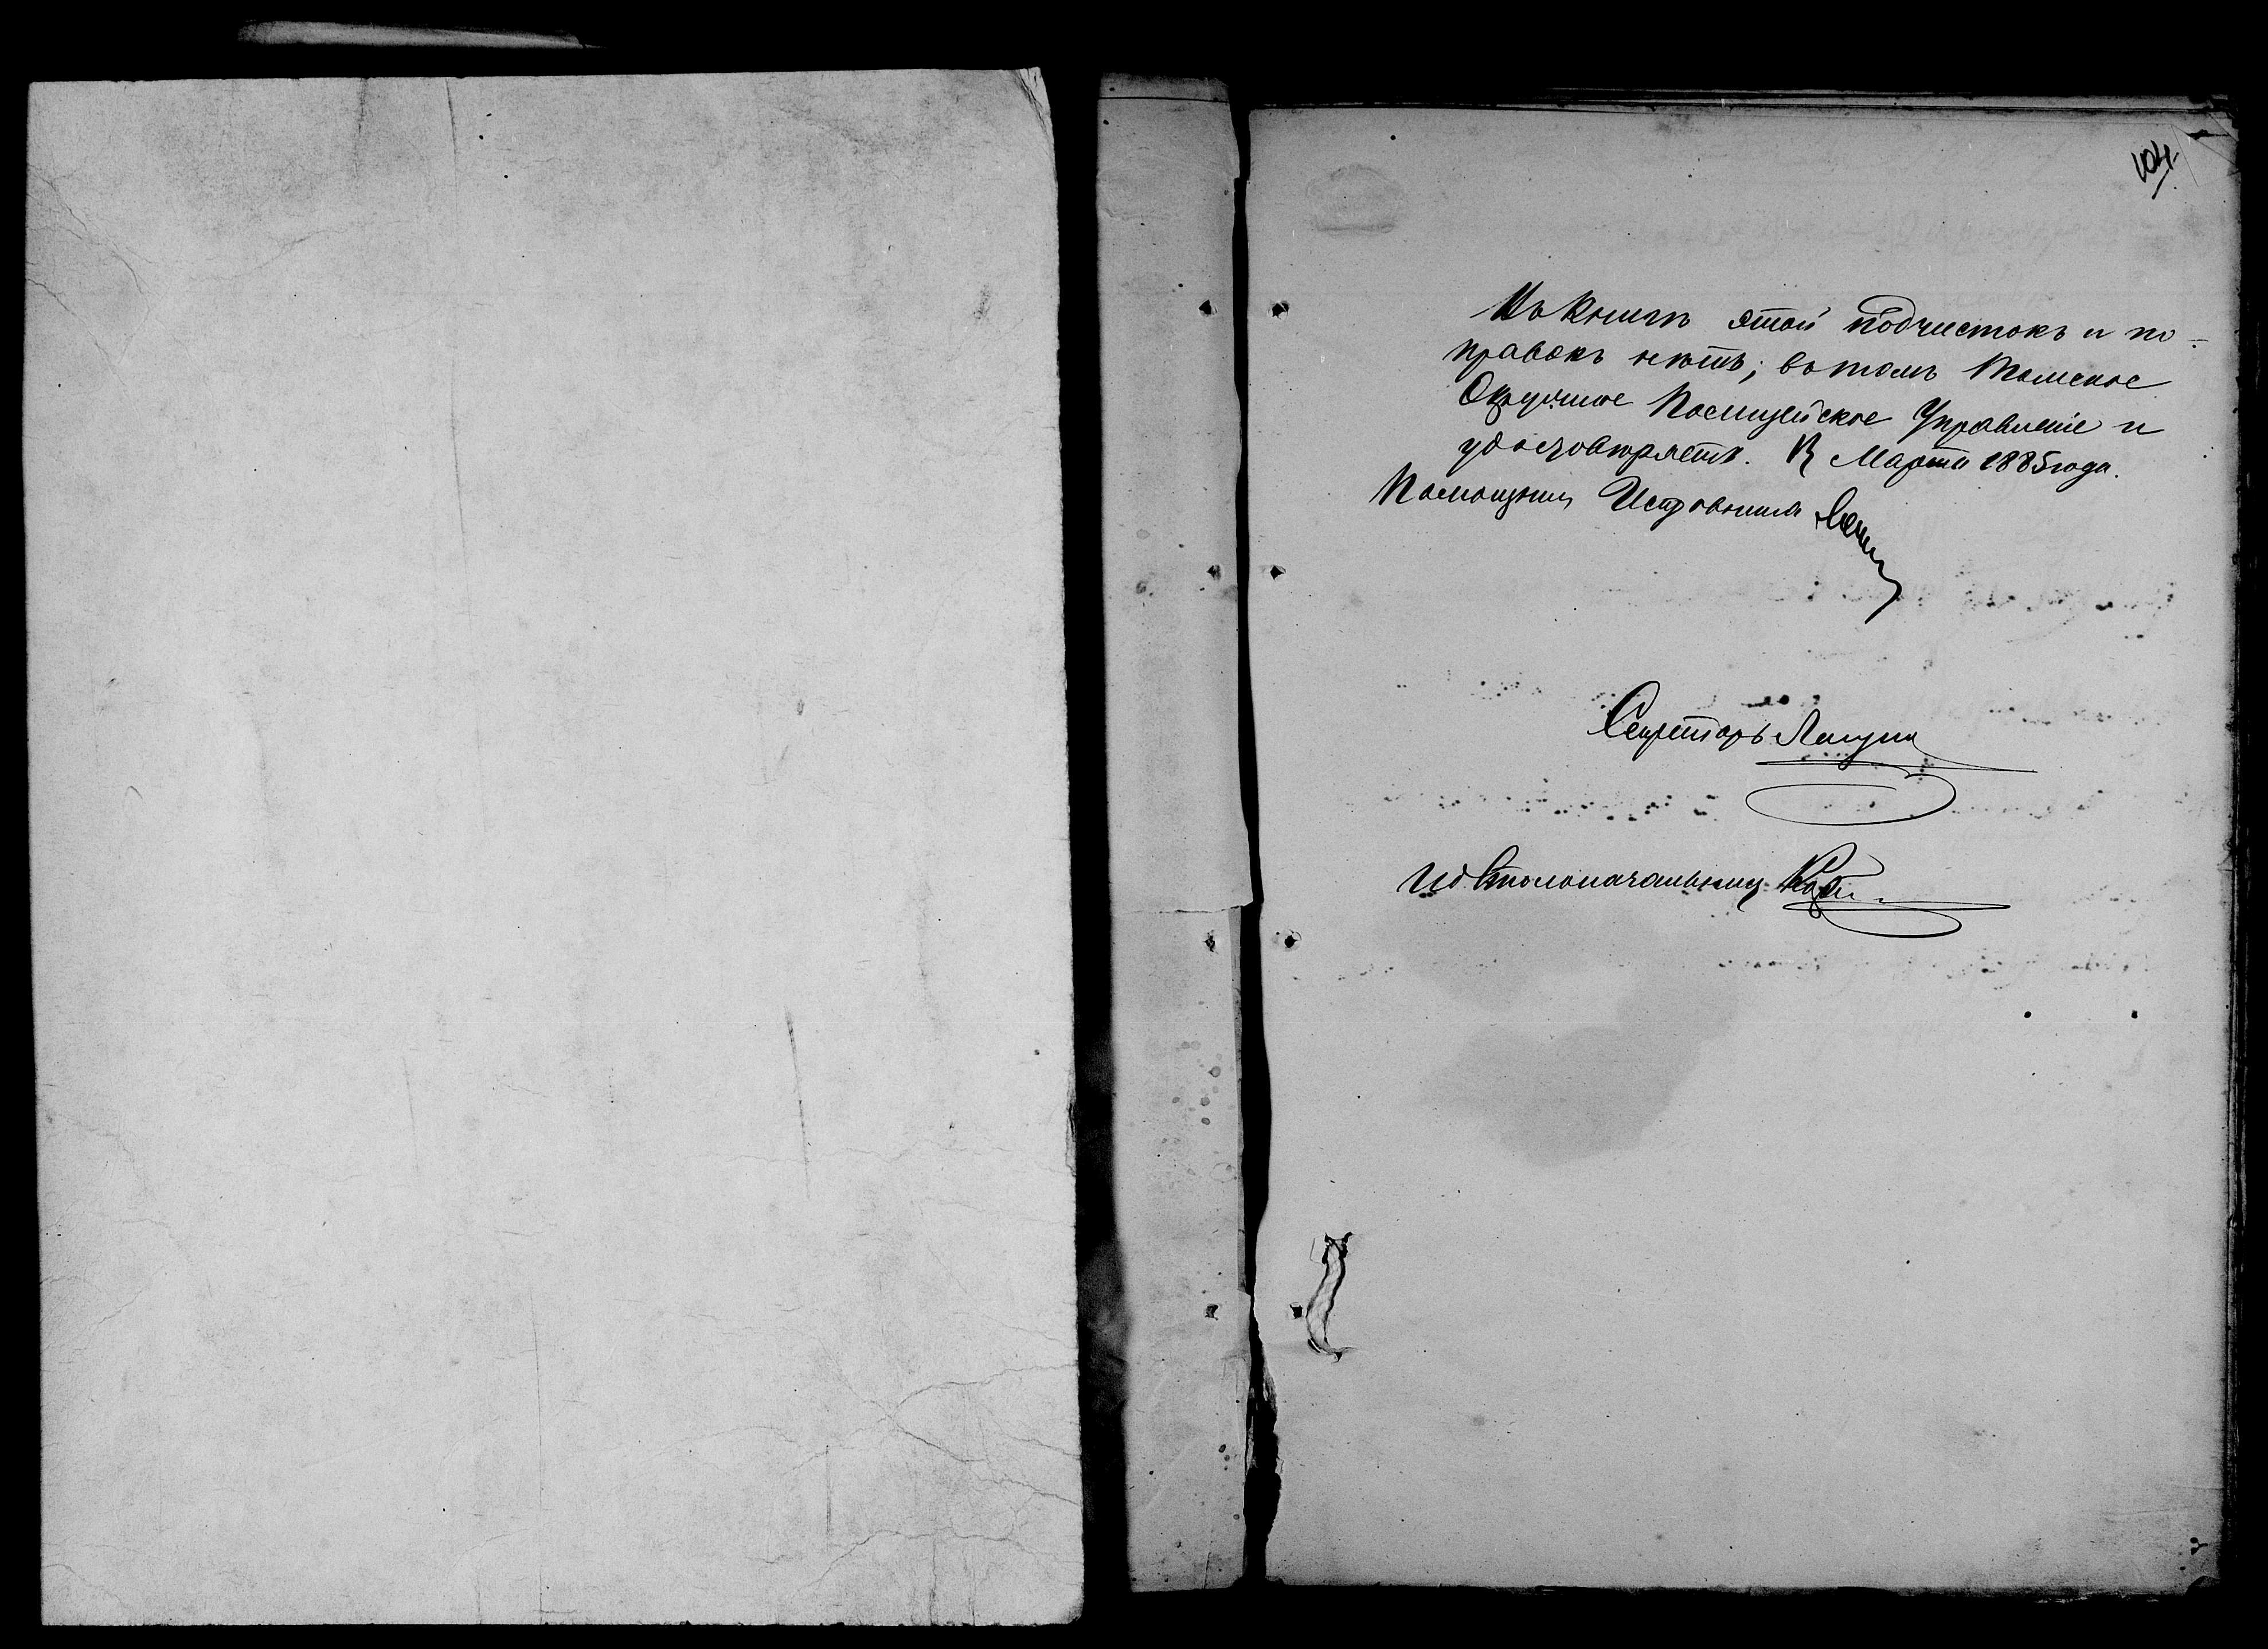 104.
Въ книгѣ этой подчистокъ и по-
правокъ нѣтъ; въ томъ Томское
Окружное Полицейское Управленіе и
удостовѣряетъ. Марта 1885 года.
Помощникъ Исправника
Секретарь
И д Столоначальника